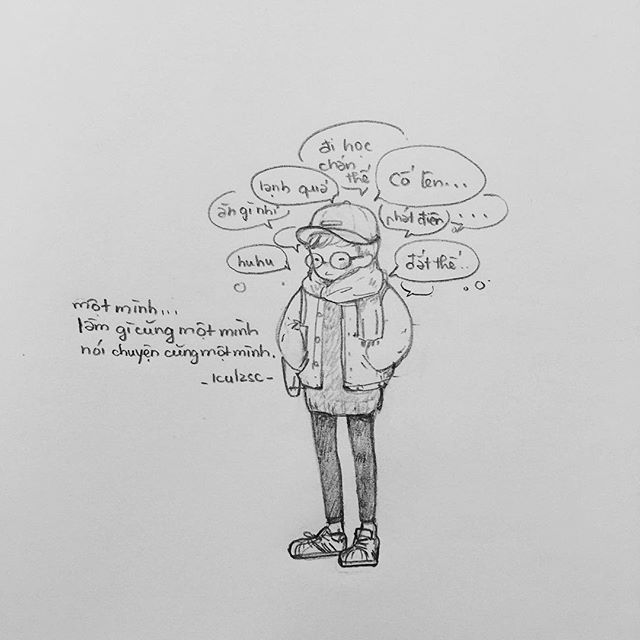 đi học
chán
thế
lạnh quá
Cố lên...
ăn gì nhỉ
phát điên
...
huhu
đắt thế..
một mình...
làm gì cũng một mình
nói chuyện cũng một mình.